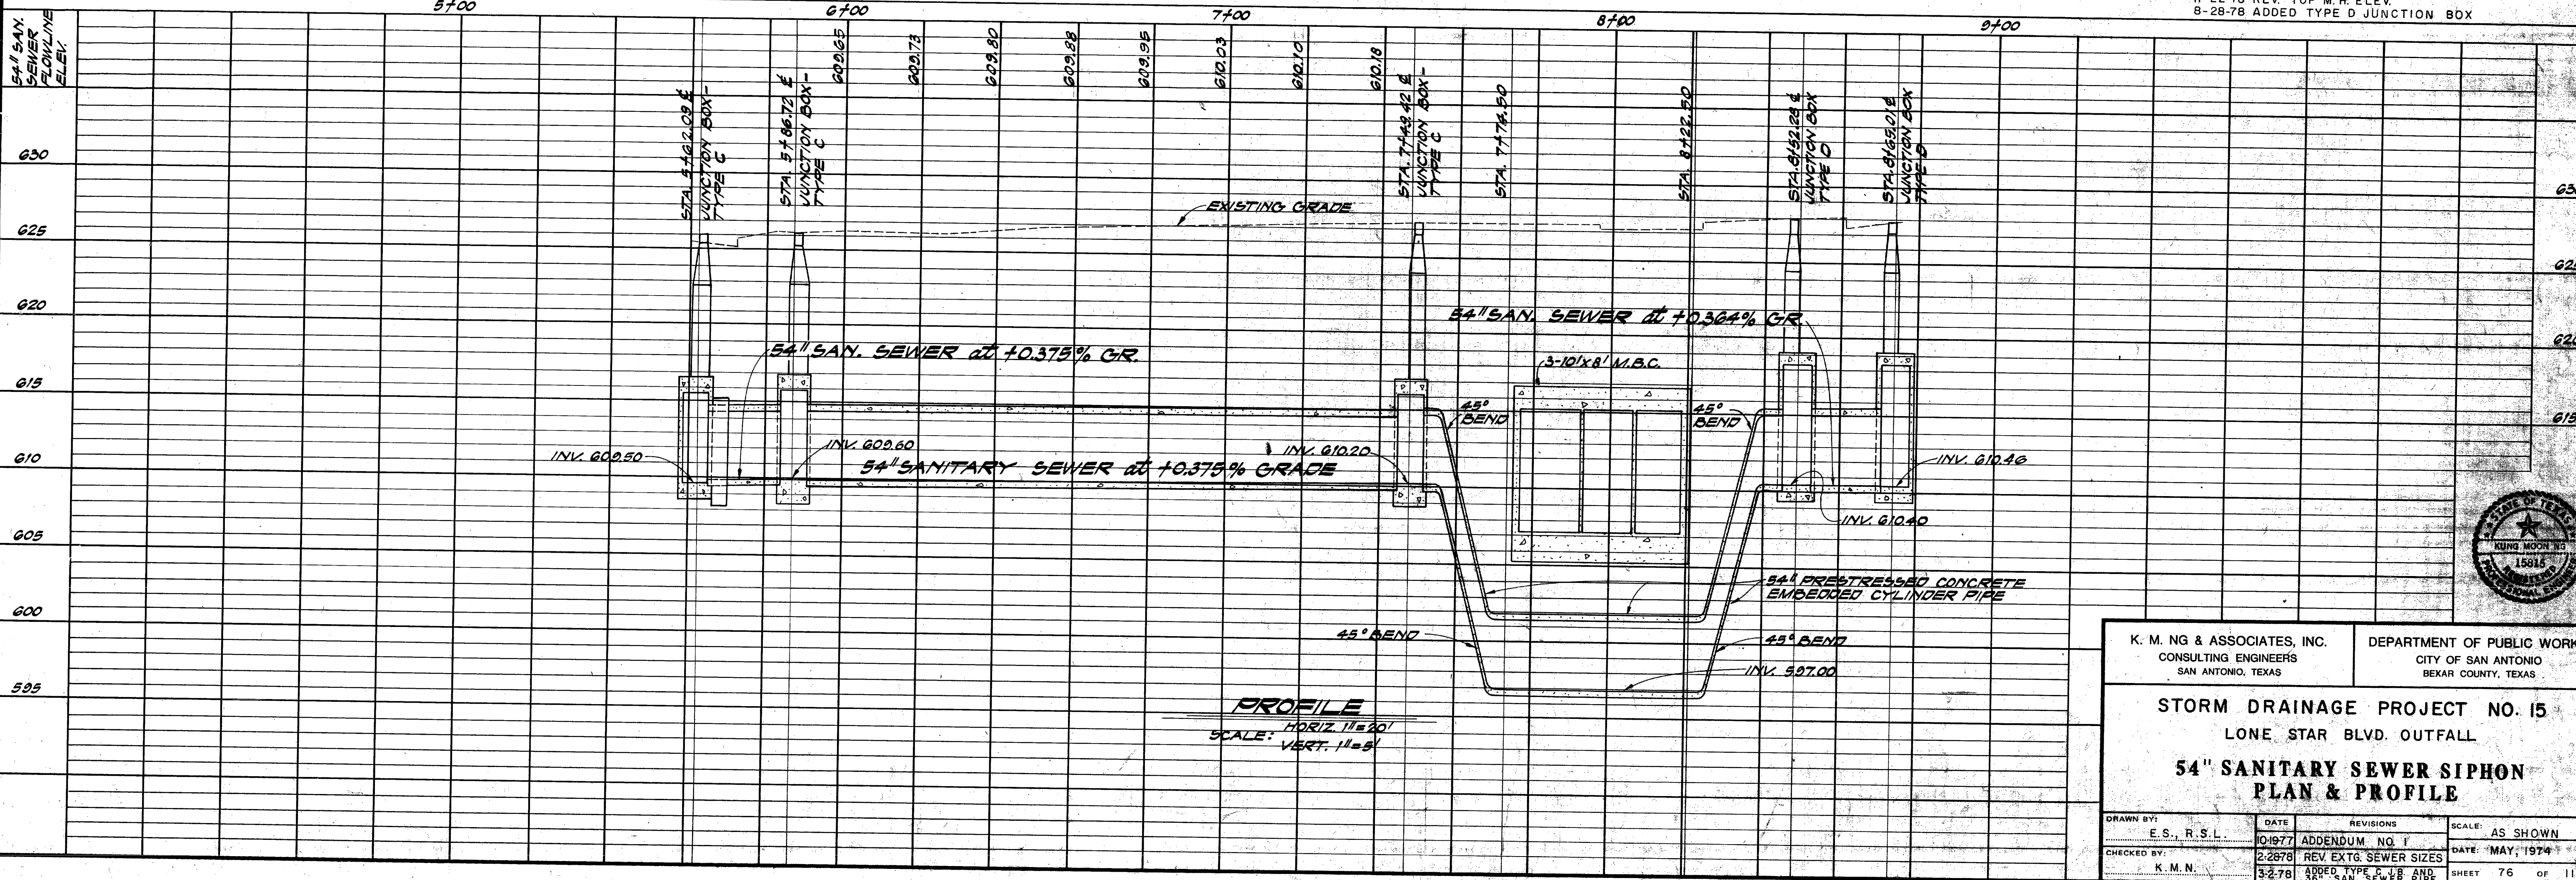 8-28-78 ADDED TYPE D JUNCTION BOX
5+00
6+00
7+00
8+00
9+00
54" SAN.
SEWER
FLOWLINE
ELEV.
609.65
609.73
609.80
609.88
609.95
610.03
610.10
610.18
STA. 5+62.09 ℄
JUNCTION BOX-
TYPE C
STA. 5+86.72 ℄
JUNCTION BOX-
TYPE C
STA. 7+49.42 ℄
JUNCTION BOX-
TYPE C
STA. 7+74.50
STA. 8+22.50
JUNCTION BOX
TYPE D
JUNCTION BOX
TYPE D
630
625
620
615
610
605
600
595
EXISTING GRADE
54" SAN. SEWER at +0.375% GR.
54" SAN. SEWER at +0.364% GR.
3-10'x8' M.B.C.
45°
BEND
45°
BEND
INV. 609.50
INV. 609.60
INV. 610.20
INV. 610.46
INV. 610.40
54" SANITARY SEWER at +0.375% GRADE
54" PRESTRESSED CONCRETE
EMBEDDED CYLINDER PIPE
45° BEND
45° BEND
INV. 597.00
PROFILE
SCALE: HORIZ. 1"=20'
VERT. 1"=5'
615
STATE OF TEXAS
KUNG MOON NG
15815
K. M. NG & ASSOCIATES, INC.
CONSULTING ENGINEERS
SAN ANTONIO, TEXAS
DEPARTMENT OF PUBLIC WORK
CITY OF SAN ANTONIO
BEXAR COUNTY, TEXAS
STORM DRAINAGE PROJECT NO. 15
LONE STAR BLVD. OUTFALL
54" SANITARY SEWER SIPHON
PLAN & PROFILE
DRAWN BY:
E.S., R.S.L.
CHECKED BY:
K.M.N.
DATE
REVISIONS
10-19-77 ADDENDUM NO. 1
2-28-78 REV. EXTG. SEWER SIZES
3-2-78 ADDED TYPE C J.B. AND
36" SAN. SEWER PIPE
SCALE: AS SHOWN
DATE: MAY, 1974
SHEET 76 OF